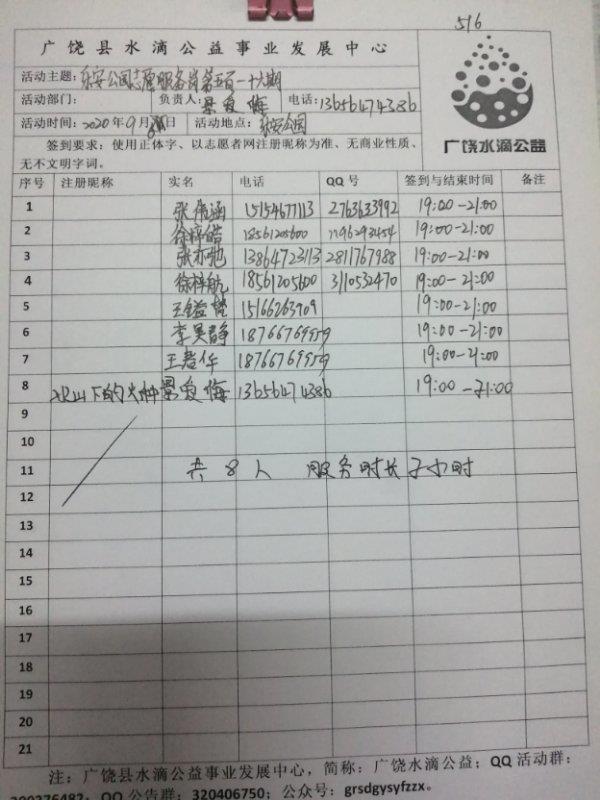 516
广饶县水滴公益事业发展中心
活动主题: 乐安公园志愿服务岗第五百一十六期
活动部门: 负责人: 景爱梅 电话: 13656474386
活动时间: 2020年9月 日 活动地点: 乐安公园
广饶水滴公益
签到要求: 使用正体字、以志愿者网注册昵称为准、无商业性质、
无不文明字词。
序号 注册昵称 实名 电话 QQ号 签到与结束时间 备注
1 张伟涵 15154677113 2763633992 19:00-21:00
2 徐梓皓 18561205600 1196293454 19:00-21:00
3 张亦弛 13864723113 2811767988 19:00-21:00
4 徐梓航 18561205600 3110532470 19:00-21:00
5 王 15166263909 19:00-21:00
6 李昊静 18766769959 19:00-21:00
7 王君华 18766769959 19:00-21:00
8 火山下的火种 景爱梅 13656474386 19:00-21:00
9
10
11 共8人 服务时长 2小时
12
13
14
15
16
17
18
19
20
21
注: 广饶县水滴公益事业发展中心, 简称: 广饶水滴公益; QQ 活动群:
QQ 公告群: 320406750; 公众号: grsdgysyfzzx。